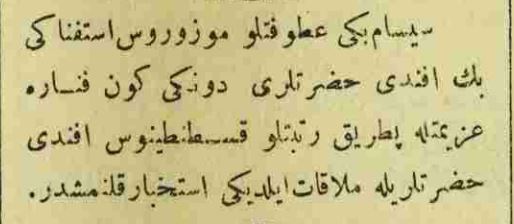 سیسام بکی عطوفتلو موزوروس استفناکی
بك افندی حضرتلری دونکی کون فنــاره
عزیمتله پطریق رتبتلو قســطنطینوس افندی
حضرتلریله ملاقات ایلدیکی استخبار قلنمشدر.